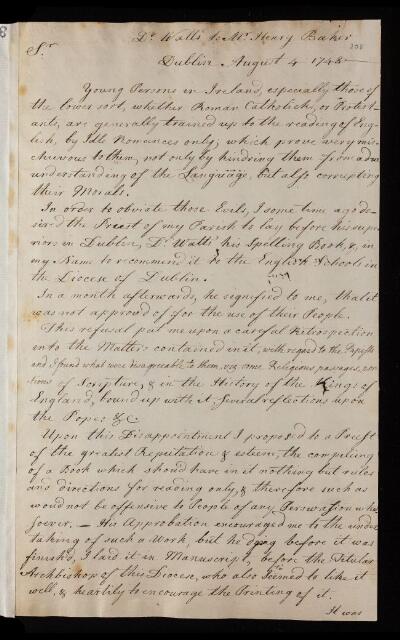 Dr. Watts to Mr. Henry Baker
208
Sr.
Dublin August 4 1748
Young Persons in Ireland, especially those of
the lower sort, whether Roman Catholicks, or Protest-
ants, are generally trained up to the reading of Eng-
lish, by Idle Romances only; which prove very mis-
chievous to them, not only by hindring them from a due
understanding of the Language, but also corrupting
their Morals.
In order to obviate those Evils, I some time ago de-
sired the Preist of my Parish to lay before his supe-
riors in Dublin, Dr. Watts' his Spelling Book, &, in
my Name to recommend it to the English Schools in
the Diocese of Dublin.
In a month afterwards, he signified to me, that it
was not approv'd of for the use of their People.
This refusal put me upon a careful Retrospection
into the Matters contained in it, with regard to the Papists
and I found what were disagreeable to them, viz, some Religious passages,
tions of Scripture, & in the History of the Kings of
England, bound up with it, several reflections upon
the Popes &c.
Upon this Disappointment I proposed to a Preist
of the greatest Reputation & esteem, the compiling
of a Book which should have in it nothing but rules
and directions for reading only, & therefore such as
woud not be offensive to People of any Perswasion what
soever. — His Approbation encouraged me to the under
taking of such a Work, but he dying before it was
finish'd, I laid it in Manuscript, before the Titular
Archbishop of this Diocese, who also seemed to like it
well, & heartily to encourage the Printing of it.
It was